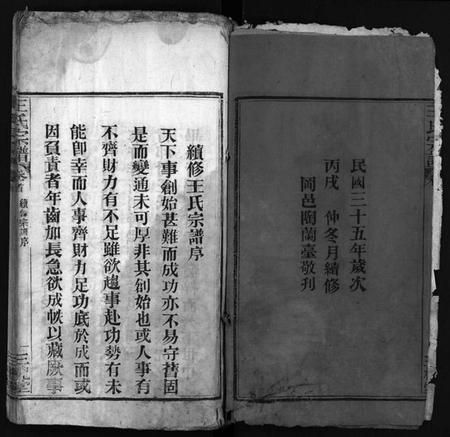 民國三十五年歲次
丙戌 仲冬月續修
岡邑陶蘭臺敬刋
續修王氏宗譜序
天下事創始甚難而成功亦不易守舊固
是而變通未可厚非其創始也或人事有
不齊財力有不足雖欲趨事赴功勢有未
能卽幸而人事齊財力足功底於成而或
因負責者年齒加長急欲成帙以藏厥事
王氏宗譜
卷首